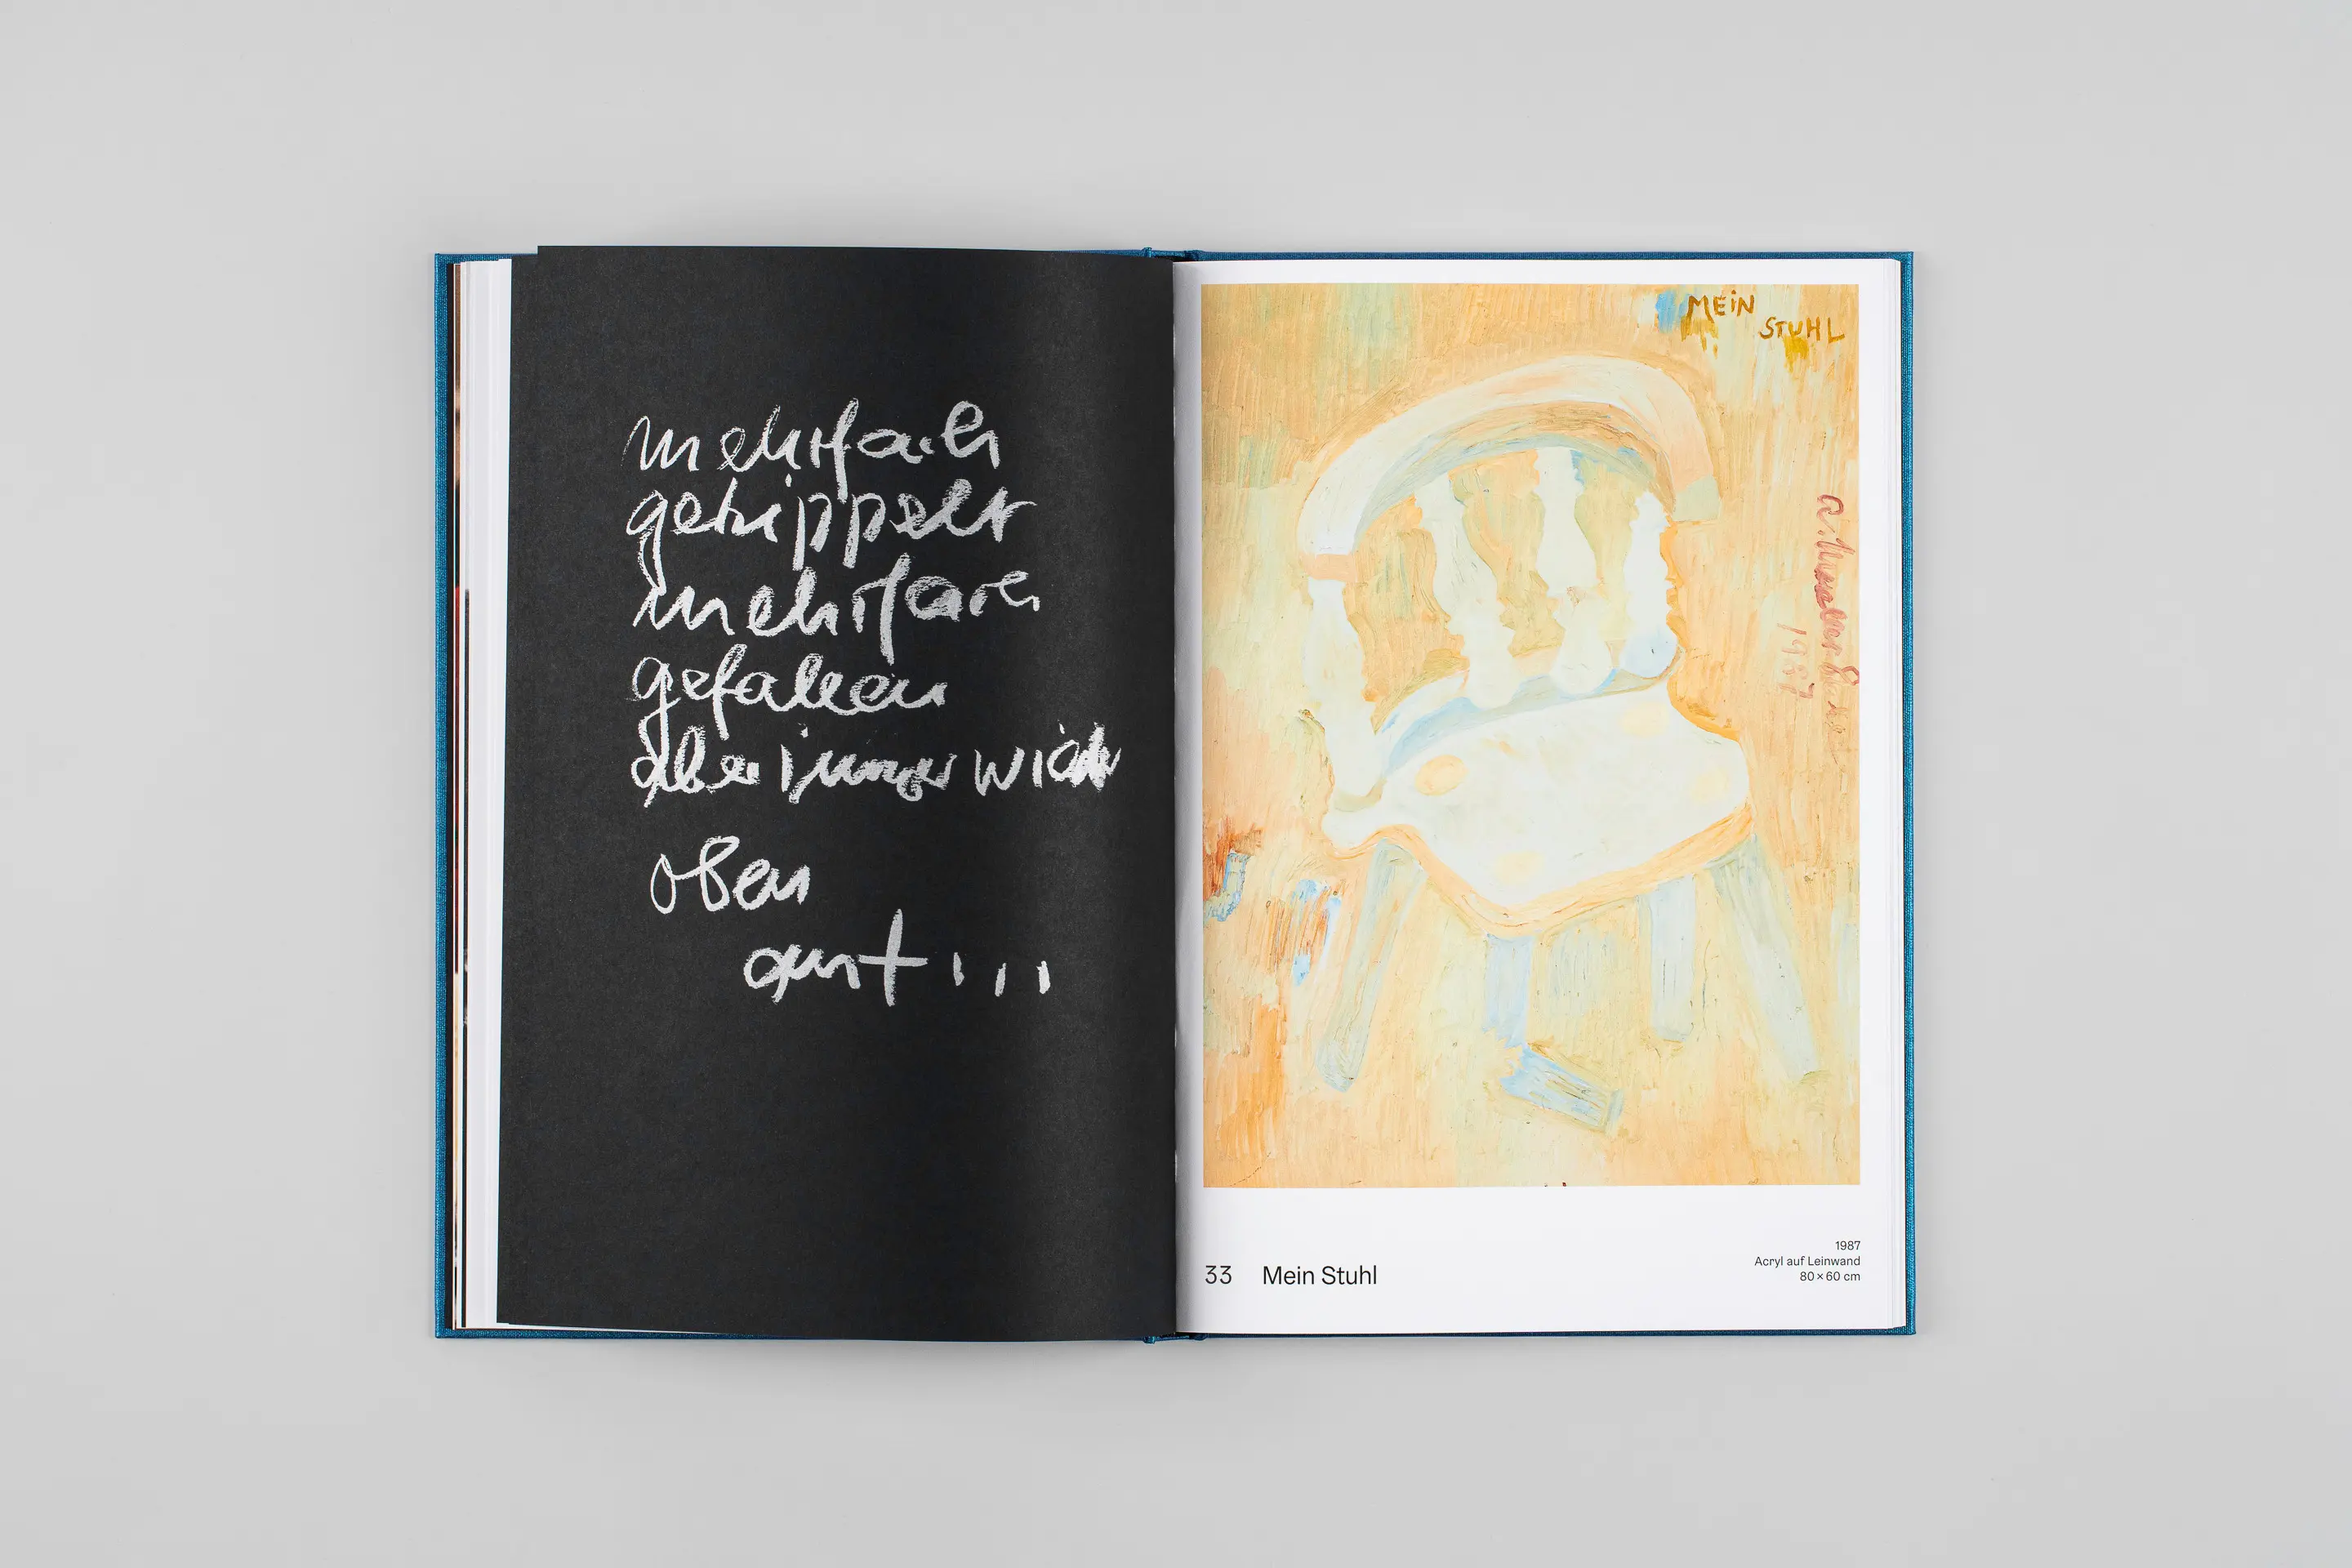 mehrfach
gekippelt
mehrfach
gefallen
aber immer wieder
oben
auf...
MEiN
STUHL
1987
33 Mein Stuhl
1987
Acryl auf Leinwand
80 × 60 cm